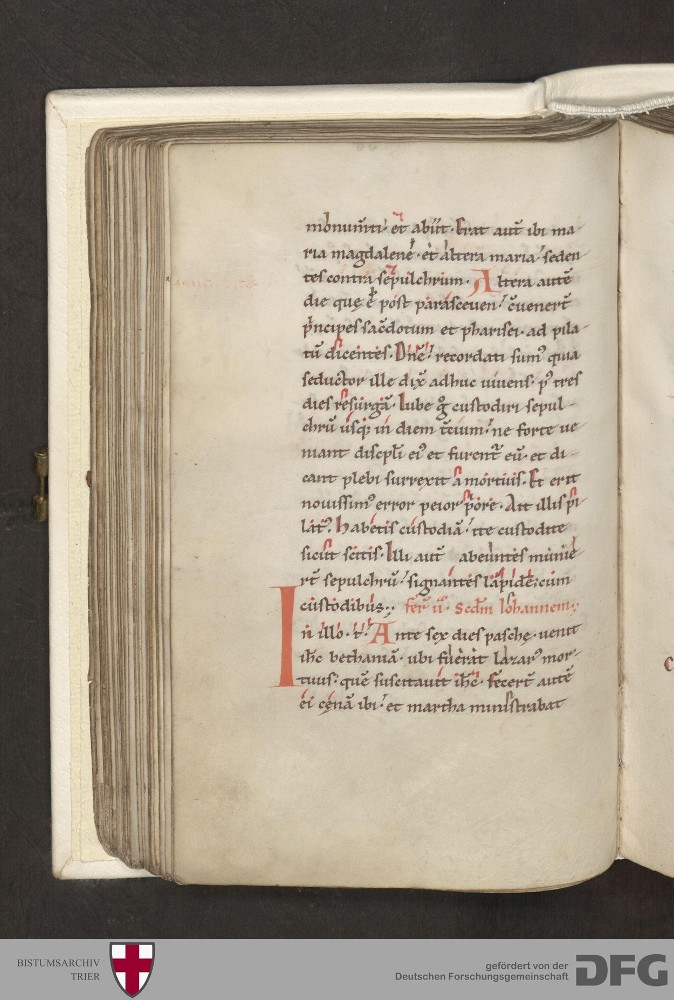 monum̄ti· et abiit· Erat aut̄ ibi ma-
ria magdalene· et altera maria· seden-
tes contra sepulchrum. Altera autē
die quę ē post parasceuen· ꝯuenert̄
p̄ncipes sac̄dotum et pharisei· ad pila-
tū dicentes. Dn̄e· recordati sumꝰ quia
seductor ille dix̄ adhuc uiuens· p̱ꝰ tres
dies resurgā. Iube g̊ custodiri sepul-
chrū usqꝫ in diem t̄cium· ne forte ue-
niant discipli eiꝰ et furent̄ eū· et di-
cant plebi surrexit a mortuis. Et erit
nouissimꝰ error peior p̱ore. Ait illis pi-
latꝰ. Habetis custodiā· ite custodite
sicut scitis. Illi aut̄ abeuntes munie-
rt̄ sepulchrū· signantes lapidē cum
custodibus. fer̄ ii. Scd̄m Iohannem.
In illo· t̄· Ante sex dies paschę· uenit
ih̄c bethaniā· ubi fuerat lazarꝰ mor-
tuus· quē suscitauit ih̄c· fecert̄ autē
ei cęnā ibi· et martha ministrabat
BISTUMSARCHIV
TRIER
gefördert von der
Deutschen Forschungsgemeinschaft
DFG